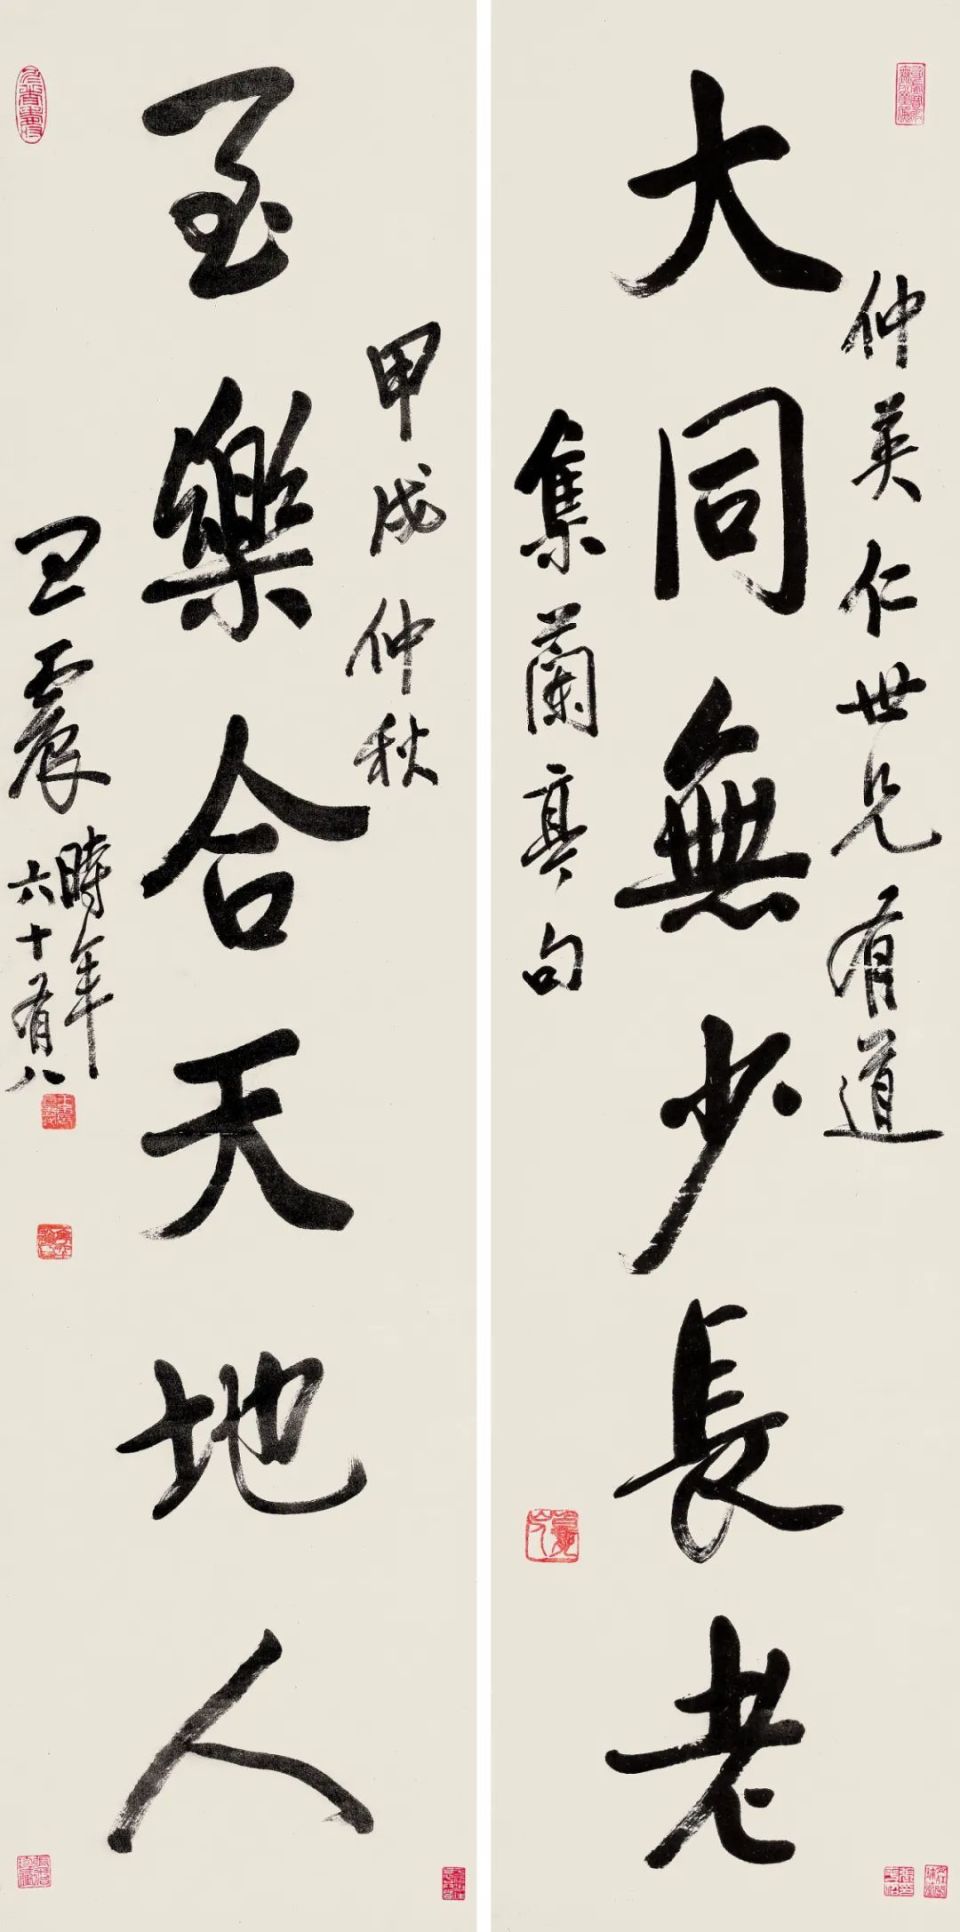 仲英仁世兄有道
大同無少長老
集蘭亭句
甲戌仲秋
至樂合天地人
王震
時年
六十有八